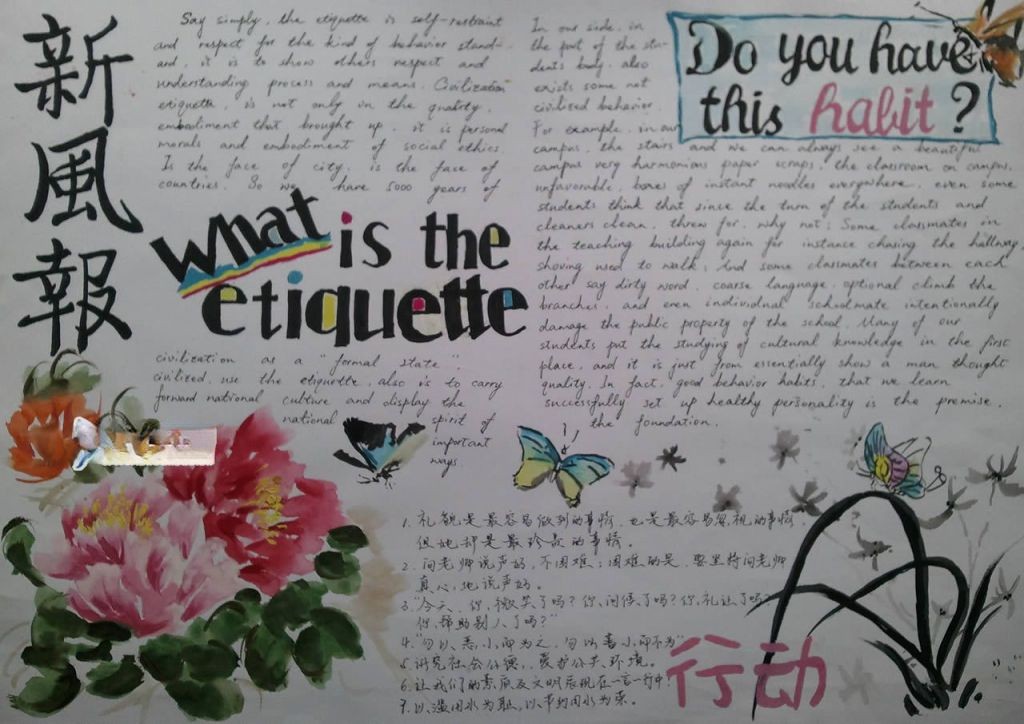 新風報
Say simply, the etiquette is self-restraint
and respect for the kind of behavior stand-
ard, it is to show others respect and
understanding process and means. Civilization
etiquette, is not only on the quality,
embodiment that brought up, it is personal
morals and embodiment of social ethics.
Is the face of city, is the face of
countries. So we have 5000 years of
What is the
etiquette
civilization as a "formal state".
civilized, use the etiquette, also is to carry
forward national culture and display the
national spirit of
important
ways.
Do you have
this habit?
In our side, in
the part of the stu-
dents body, also
exists some not
civilized behavior.
For example, in our
campus, the stairs and we can always see a beautiful
campus very harmonious paper scraps, the classroom on campus,
unfavorable, boxes of instant noodles everywhere, even some
students think that since the turn of the students and
cleaners clean, threw for, why not; Some classmates in
the teaching building again for instance chasing the hallway,
shoving used to walk; And some classmates between each
other say dirty word, coarse language, optional climb the
branches, and even individual schoolmate intentionally
damage the public property of the school. Many of our
students put the studying of cultural knowledge in the first
place, and it is just from essentially show a man thought
quality. In fact, good behavior habits, that we learn
successfully set up healthy personality is the premise,
the foundation.
1. 礼貌是最容易做到的事情,也是最容易忽视的事情,
但她却是最珍贵的事情。
2. 向老师说声好,不困难;困难的是,要坚持向老师
真心地说声好。
3. "今天,你微笑了吗?你问候了吗?你礼让了吗?
你帮助别人了吗?"
4. "勿以恶小而为之,勿以善小而不为"
5. 讲究社会公德,爱护公共环境。
6. 让我们的素质及文明展现在一言一行中!
7. 以滥用水为耻,以节约用水为荣。
行动